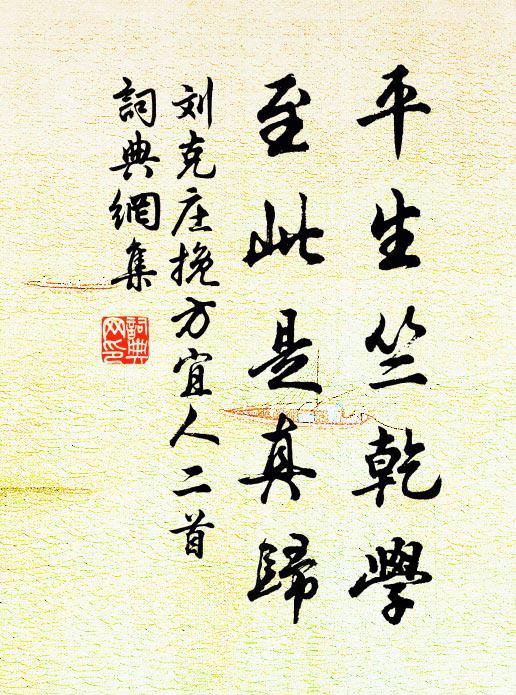 平生竺乾學
至此是真歸
刘克庄挽方宜人二首
詞典網集
詞典网印